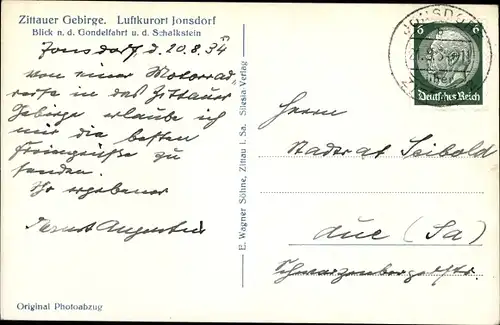 Zittauer Gebirge. Luftkurort Jonsdorf
Blick n. d. Gondelfahrt u. d. Schalkstein
Jonsdorf, d. 20.8.34
von einer Motorrad
in das Zittauer
Gebirge erlaube ich
mir die besten
zu
senden.
Ihr ergebener
Augustin
E. Wagner Söhne, Zittau i. Sa. Silesia-Verlag
JONSDORF
6 6
Deutsches Reich
Herrn
Stadtrat Seibold
Aue (Sa)
Schwarzenbergerstr.
Original Photoabzug